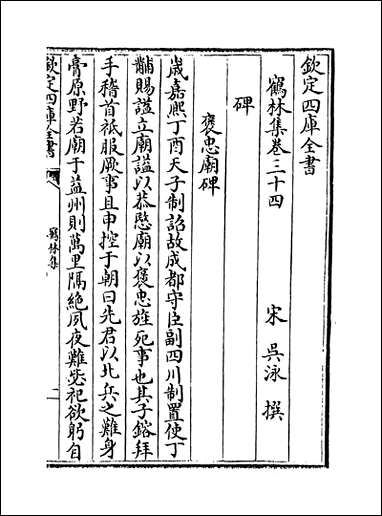 欽定四庫全書
鶴林集卷三十四
宋 吳泳 撰
碑
褒忠廟碑
歲嘉熙丁酉天子制詔故成都守臣副四川制置使丁
黼賜諡立廟諡以恭愍廟以褒忠旌死事也其子鎔拜
手稽首祗服厥事且申控于朝曰先君以北兵之難身
膏原野若廟于益州則萬里隔絶夙夜難毖祀欲躬自
欽定四庫全書
鶴林集
一